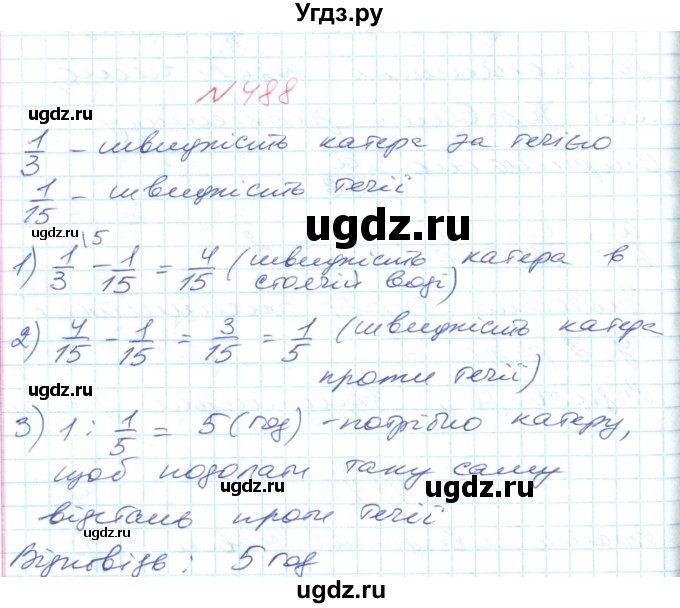 Угдз.ру
№ 488
ugdz.ru ugdz.ru
1/3 - швидкість катера за течією
1/15 - швидкість течії
ugdz.ru
1) 1/3 \5 - 1/15 = 4/15 (швидкість катера в
стоячій воді)
2) 4/15 - 1/15 = 3/15 = 1/5 (швидкість катера
ugdz.ru ugdz.ru
проти течії)
3) 1 : 1/5 = 5 (год) - потрібно катеру,
щоб подолати таку саму
ugdz.ru
відстань проти течії
Відповідь: 5 год
ugdz.ru ugdz.ru
ugdz.ru